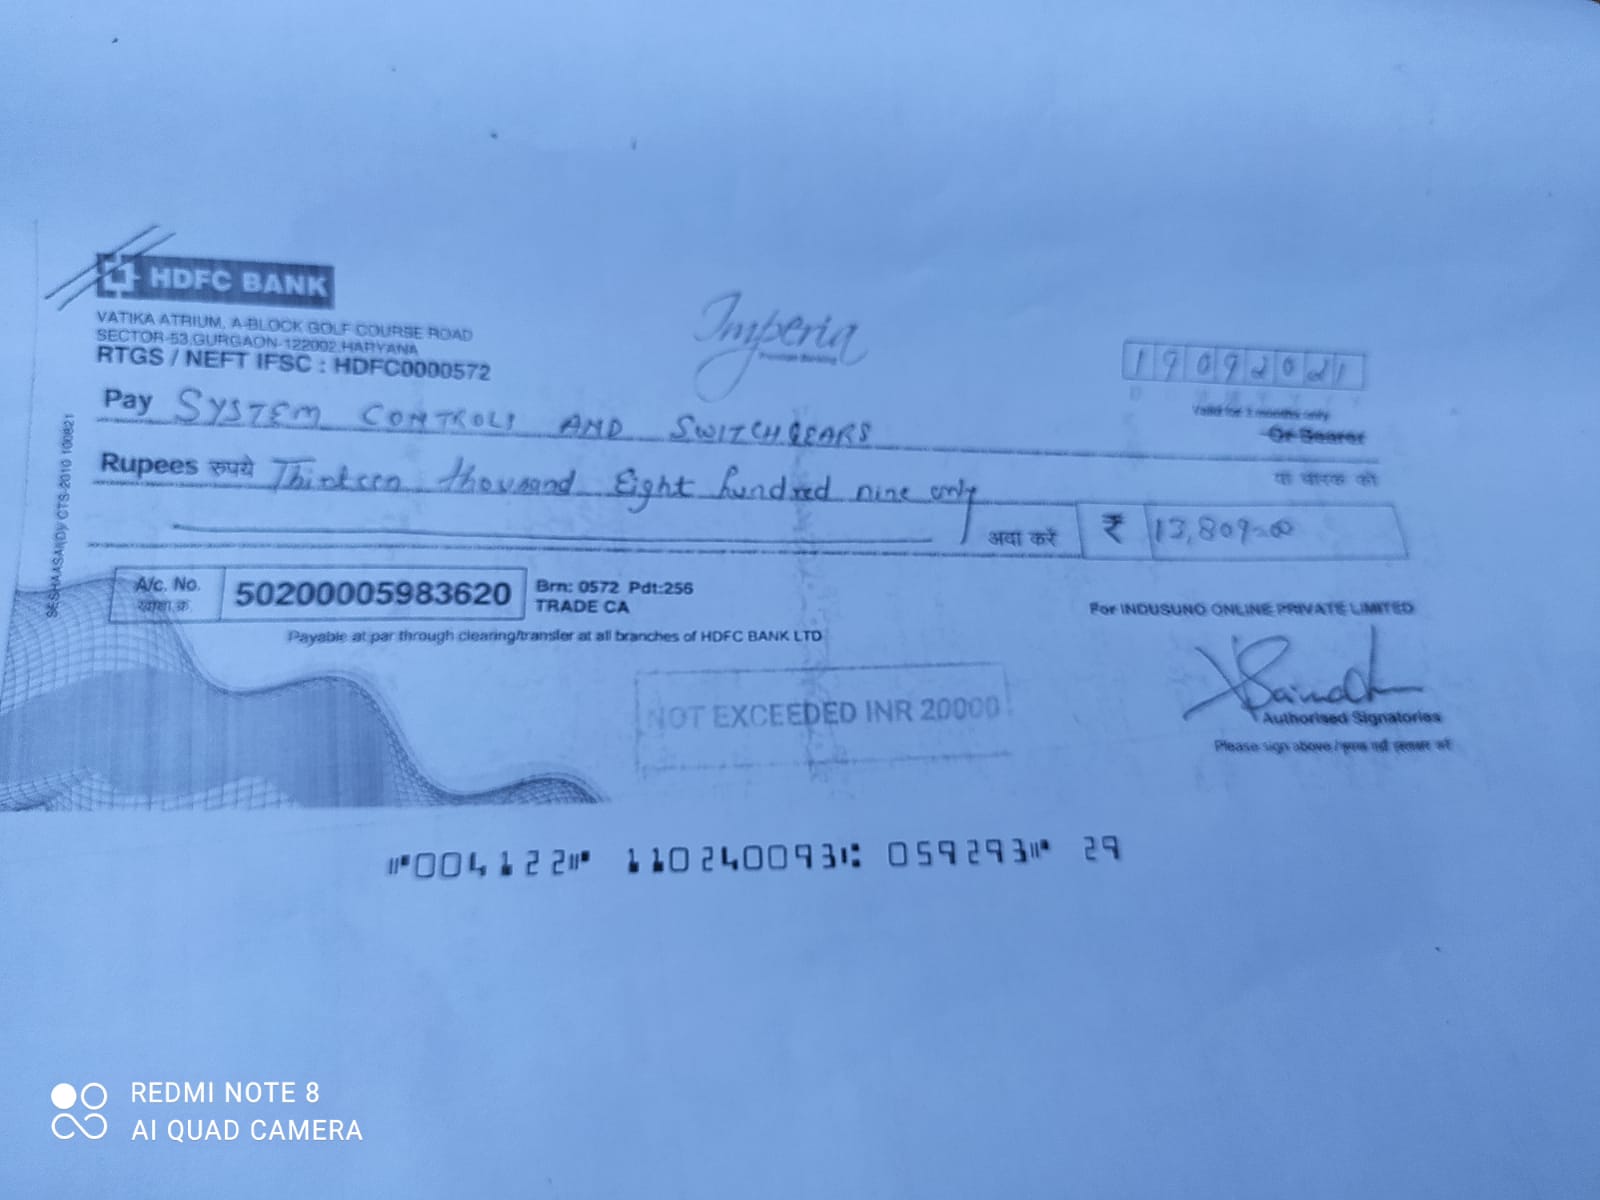 HDFC BANK
VATIKA ATRIUM, A-BLOCK GOLF COURSE ROAD
SECTOR-53,GURGAON-122002,HARYANA
RTGS / NEFT IFSC : HDFC0000572
Imperia
Premium Banking
19092021
Valid for 3 months only
Pay SYSTEM CONTROLS AND SWITCHGEARS
Or Bearer
Rupees रुपये Thirteen thousand Eight hundred nine only
या धारक को
अदा करें ₹ 13,809=00
A/c. No. 50200005983620 Brn: 0572 Pdt:256
खाता क्र. TRADE CA
Payable at par through clearing/transfer at all branches of HDFC BANK LTD
For INDUSUNO ONLINE PRIVATE LIMITED
NOT EXCEEDED INR 20000
Authorised Signatories
Please sign above /
SESHAASAI(D)/ CTS-2010 100821
⑈004122⑈ 110240093⑆ 059293⑈ 29
REDMI NOTE 8
AI QUAD CAMERA